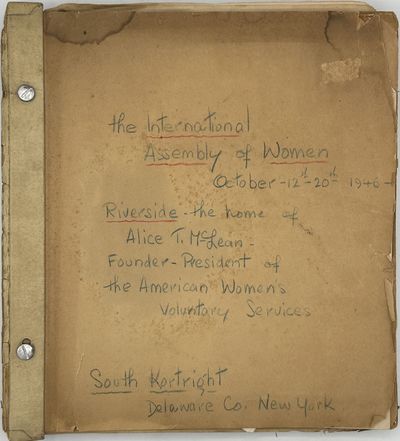 the International
Assembly of Women
October - 12th - 20th 1946 -
Riverside - the home of
Alice T. McLean -
Founder - President of
the American Women's
Voluntary Services
South Kortright
Delaware Co. New York